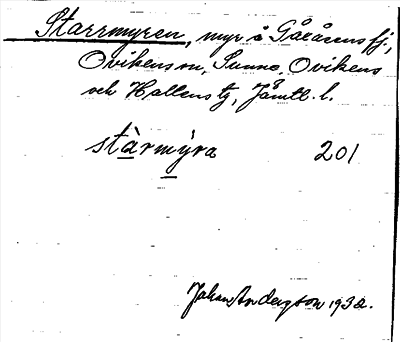 Starrmyren, myr å Gåxåsens fj.,
Ovikens sn, Sunne, Ovikens
och Hallens tg, Jämtl. l.
stàrmýra 201
Johan Anderson 1932.